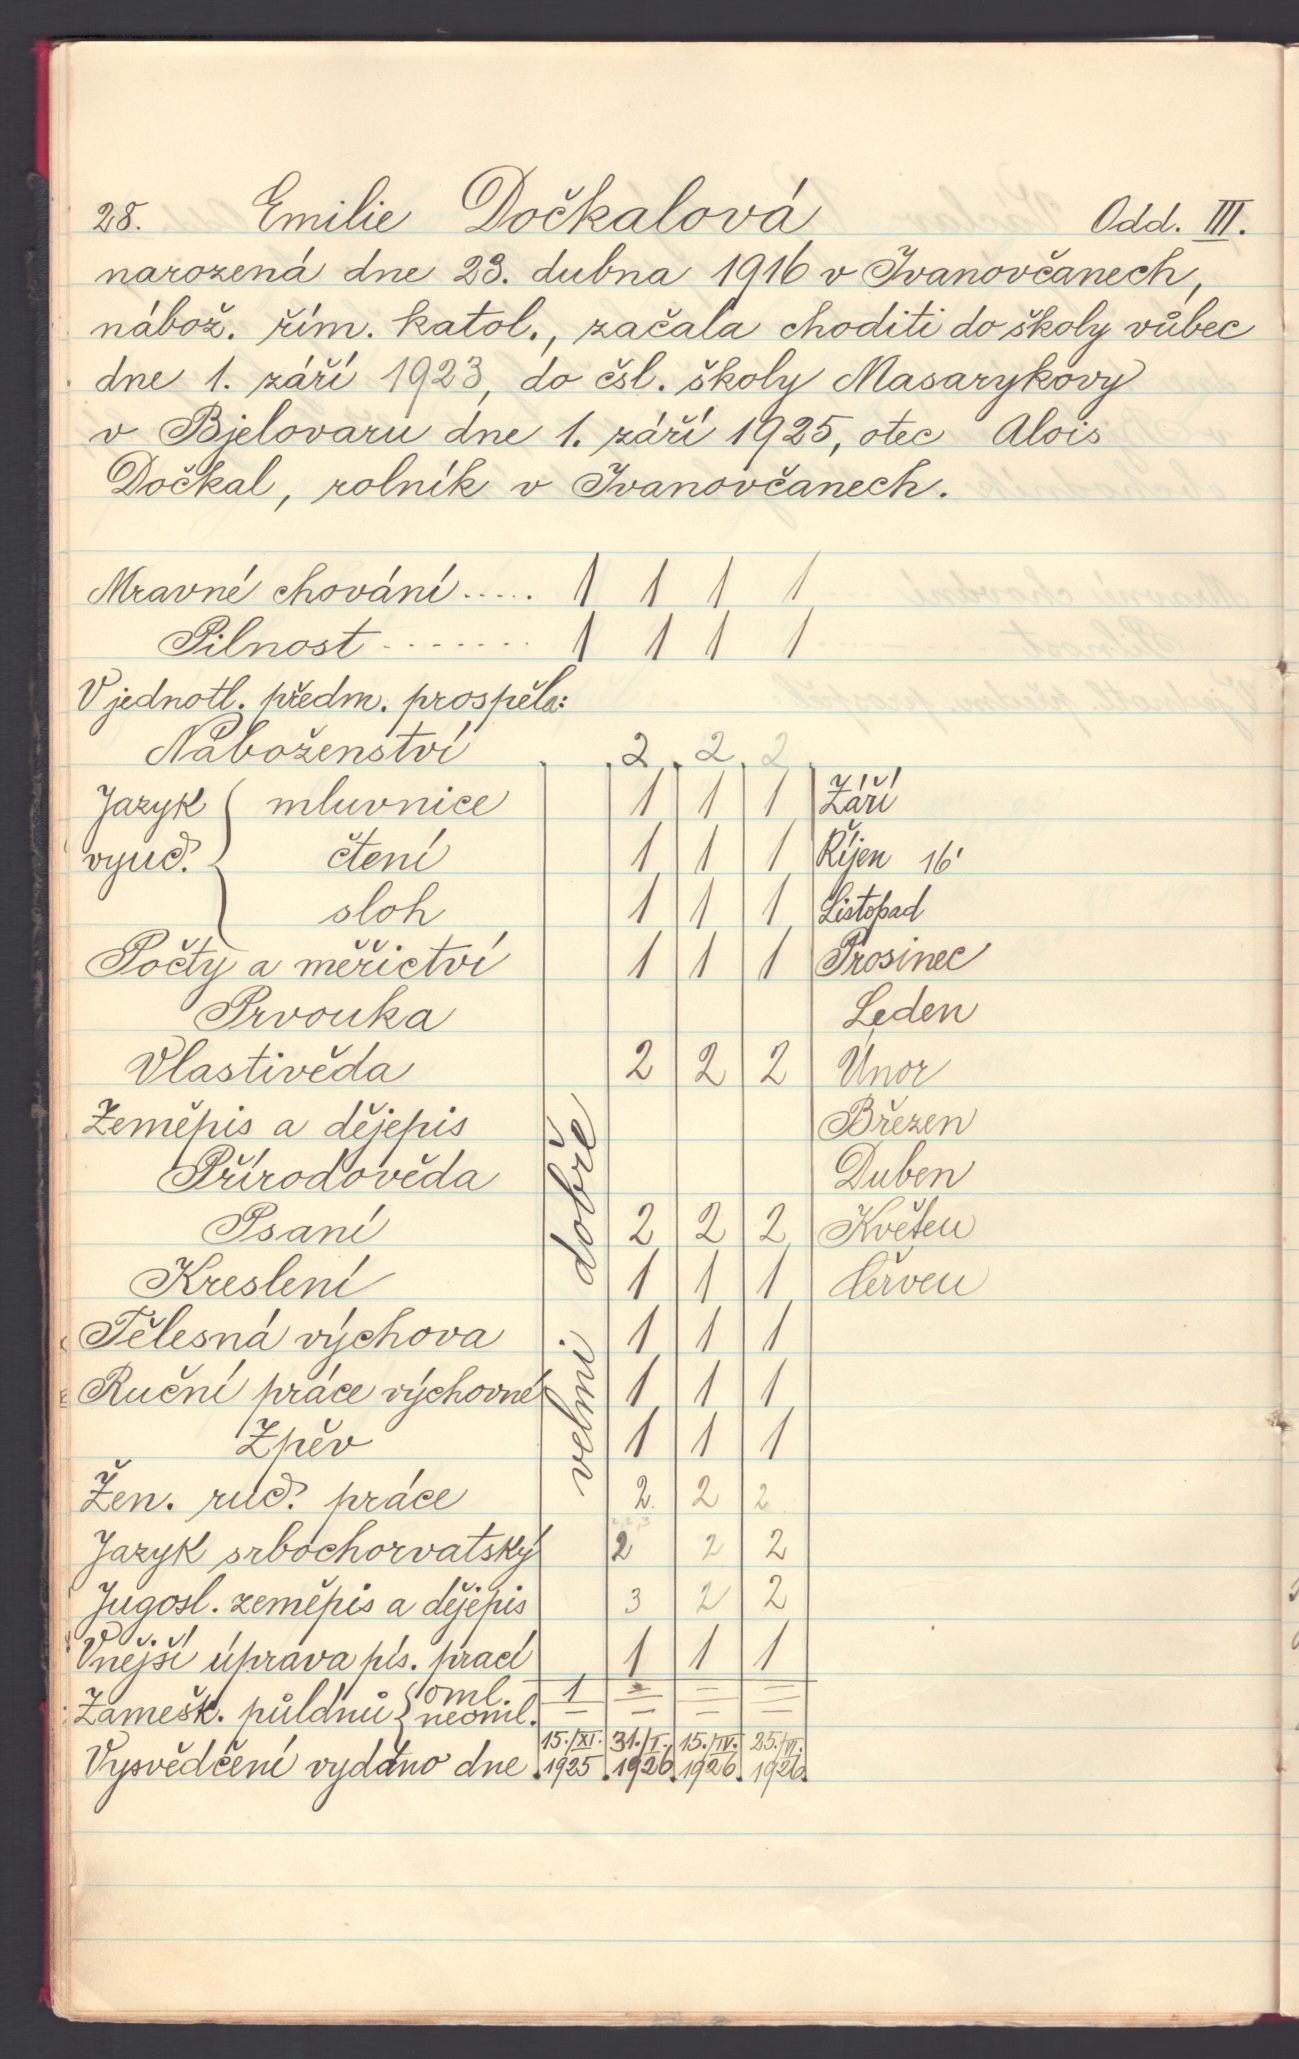 28. Emilie Dočkalová Odd. III.
narozená dne 23. dubna 1916 v Ivanovčanech,
nábož. řím. katol., začala choditi do školy vůbec
dne 1. září 1923, do čsl. školy Masarykovy
v Bjelovaru dne 1. září 1925, otec Alois
Dočkal, rolník v Ivanovčanech.
Mravné chování ..... 1 1 1 1
Pilnost ........ 1 1 1 1
V jednotl. předm. prospěla:
Náboženství 2 2 2
Jazyk vyuč. { mluvnice 1 1 1 Září
čtení 1 1 1 Říjen 16'
sloh 1 1 1 Listopad
Počty a měřictví 1 1 1 Prosinec
Prvouka Leden
Vlastivěda 2 2 2 Únor
Zeměpis a dějepis Březen
Přírodověda Duben
Psaní 2 2 2 Květen
Kreslení 1 1 1 Červen
Tělesná výchova 1 1 1
Ruční práce výchovné 1 1 1
Zpěv 1 1 1
velmi dobře
Žen. ruč. práce 2 2 2
Jazyk srbochorvatský 2 2 2
Jugosl. zeměpis a dějepis 3 2 2
Vnější úprava pís. prací 1 1 1
Zamešk. půldnů { oml. 1 = = =
neoml. = = = =
Vysvědčení vydáno dne 15./XI. 1925 31./I. 1926 15./IV. 1926 25./VI. 1926